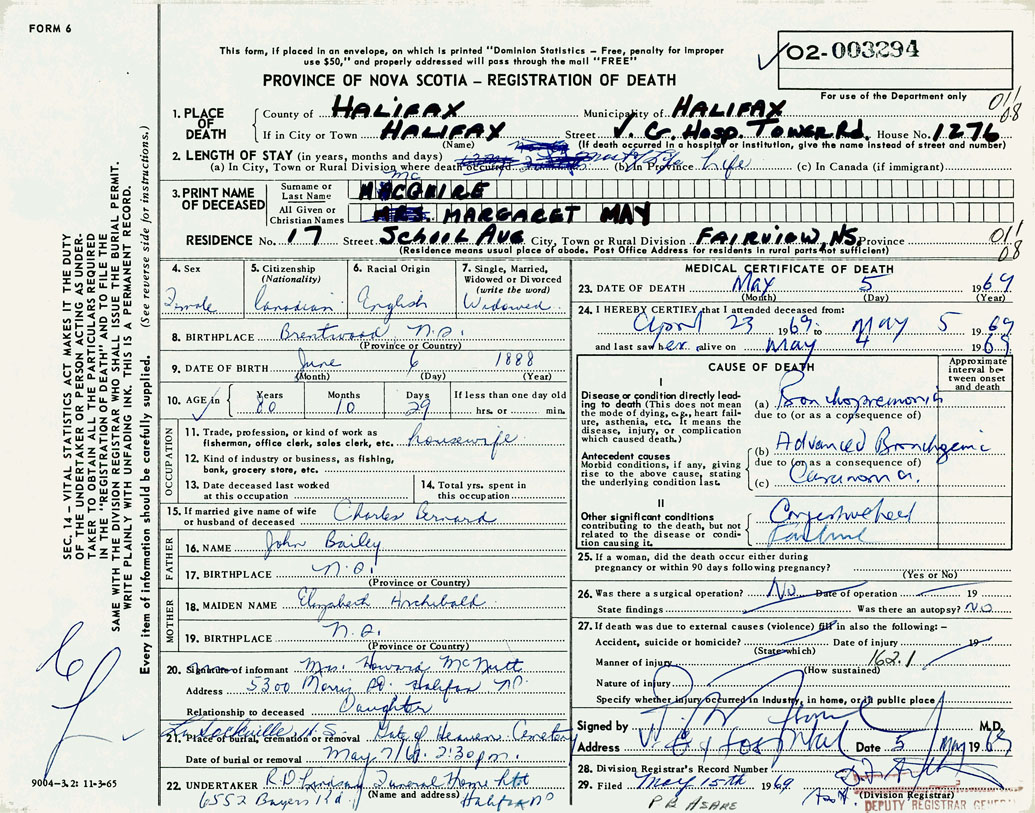 FORM 6
This form, if placed in an envelope, on which is printed "Dominion Statistics – Free, penalty for improper
use $50," and properly addressed will pass through the mail "FREE"
PROVINCE OF NOVA SCOTIA – REGISTRATION OF DEATH
02-003294
For use of the Department only
011
08
1. PLACE OF DEATH
County of HALIFAX Municipality of HALIFAX
If in City or Town HALIFAX Street V. G. Hosp. Tower Rd. House No. 1276
(Name) (If death occurred in a hospital or institution, give the name instead of street and number)
2. LENGTH OF STAY (in years, months and days)
(a) In City, Town or Rural Division where death occurred (b) In Province Life (c) In Canada (if immigrant)
3. PRINT NAME OF DECEASED
Surname or Last Name McGUIRE
All Given or Christian Names MRS. MARGARET MAY
RESIDENCE No. 17 Street School Ave City, Town or Rural Division FAIRVIEW, NS. Province
(Residence means usual place of abode. Post Office Address for residents in rural parts not sufficient)
011
08
4. Sex Female
5. Citizenship (Nationality) Canadian
6. Racial Origin English
7. Single, Married, Widowed or Divorced (write the word) Widowed
8. BIRTHPLACE Brentwood N.S.
(Province or Country)
9. DATE OF BIRTH June 6 1888
(Month) (Day) (Year)
10. AGE in Years 80 Months 10 Days 29 If less than one day old hrs. or min.
OCCUPATION
11. Trade, profession, or kind of work as fisherman, office clerk, sales clerk, etc. housewife
12. Kind of industry or business, as fishing, bank, grocery store, etc.
13. Date deceased last worked at this occupation
14. Total yrs. spent in this occupation
15. If married give name of wife or husband of deceased Charles Bernard
FATHER
16. NAME John Bailey
17. BIRTHPLACE N.S.
(Province or Country)
MOTHER
18. MAIDEN NAME Elizabeth Archibald
19. BIRTHPLACE N.S.
(Province or Country)
20. Signature of informant Mrs. Howard McNutt
Address 5300 Morris St. Halifax NS
Relationship to deceased Daughter
L. Sackville N.S.
21. Place of burial, cremation or removal Gate of Heaven Cemetery
Date of burial or removal May 7/69. 2:30 p.m.
22. UNDERTAKER Funeral Home
(Name and address)
6552 Bayers Rd. Halifax NS
MEDICAL CERTIFICATE OF DEATH
23. DATE OF DEATH May 5 1969
(Month) (Day) (Year)
24. I HEREBY CERTIFY that I attended deceased from:
April 23 1969 to May 5 1969
and last saw her alive on May 4 1969
CAUSE OF DEATH
Approximate interval between onset and death
I
Disease or condition directly leading to death (This does not mean the mode of dying, e.g., heart failure, asthenia, etc. It means the disease, injury, or complication which caused death.)
(a) Bronchopneumonia
due to (or as a consequence of)
Antecedent causes
Morbid conditions, if any, giving rise to the above cause, stating the underlying condition last.
(b) Advanced Bronchogenic
due to (or as a consequence of)
(c) Carcinoma.
II
Other significant conditions
contributing to the death, but not related to the disease or condition causing it.
Congestive heart
Failure
25. If a woman, did the death occur either during
pregnancy or within 90 days following pregnancy?
(Yes or No)
26. Was there a surgical operation? No Date of operation 19
State findings Was there an autopsy? NO
27. If death was due to external causes (violence) fill in also the following:–
Accident, suicide or homicide? Date of injury 19
(State which)
Manner of injury 162.1
(How sustained)
Nature of injury
Specify whether injury occurred in industry, in home, or in public place
Signed by M.D.
Address V. G. Hospital Date 5 May 1969
28. Division Registrar's Record Number
29. Filed May 15th 1969
(Division Registrar)
DEPUTY REGISTRAR GENERAL
SEC. 14 – VITAL STATISTICS ACT MAKES IT THE DUTY
OF THE UNDERTAKER OR PERSON ACTING AS UNDER-
TAKER TO OBTAIN ALL THE PARTICULARS REQUIRED
IN THE "REGISTRATION OF DEATH" AND TO FILE THE
SAME WITH THE DIVISION REGISTRAR WHO SHALL ISSUE THE BURIAL PERMIT.
WRITE PLAINLY WITH UNFADING INK. THIS IS A PERMANENT RECORD.
Every item of information should be carefully supplied. (See reverse side for instructions.)
9004–3.2: 11-3-65